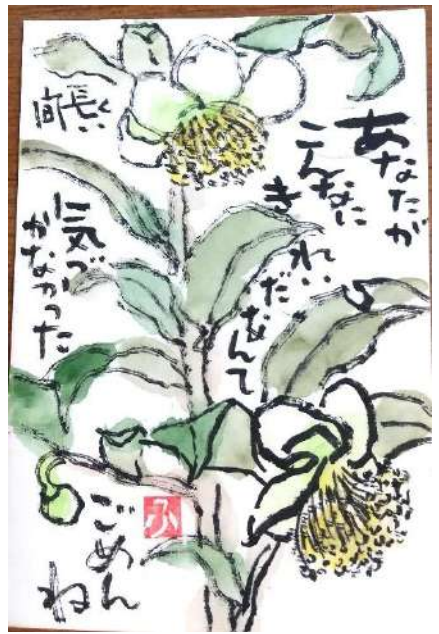 あなたが
こんなに
きれいだなんて
長い間
気づ
かなかった
ごめん
ね
ふ